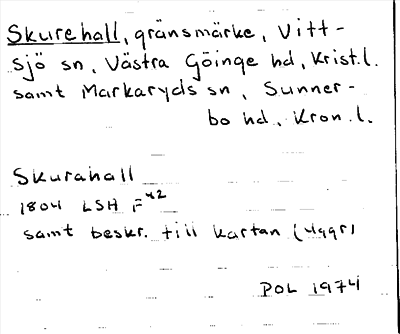 Skurehall, gränsmärke, Vitt-
sjö sn, Västra Göinge hd, Krist.l.
samt Markaryds sn, Sunner-
bo hd, Kron.l.
Skurahall
1804 LSH F 42
samt beskr. till kartan (
POL 1974